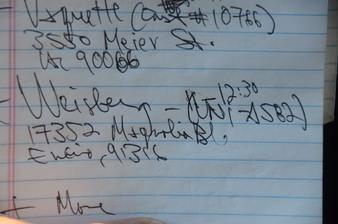 - Vaquette (#10766)
3550 Meier St.
LA 90066
12:30
- Weisberg - (UNi-A582)
17352 Magnolia Bl,
Encino, 91316
+ More